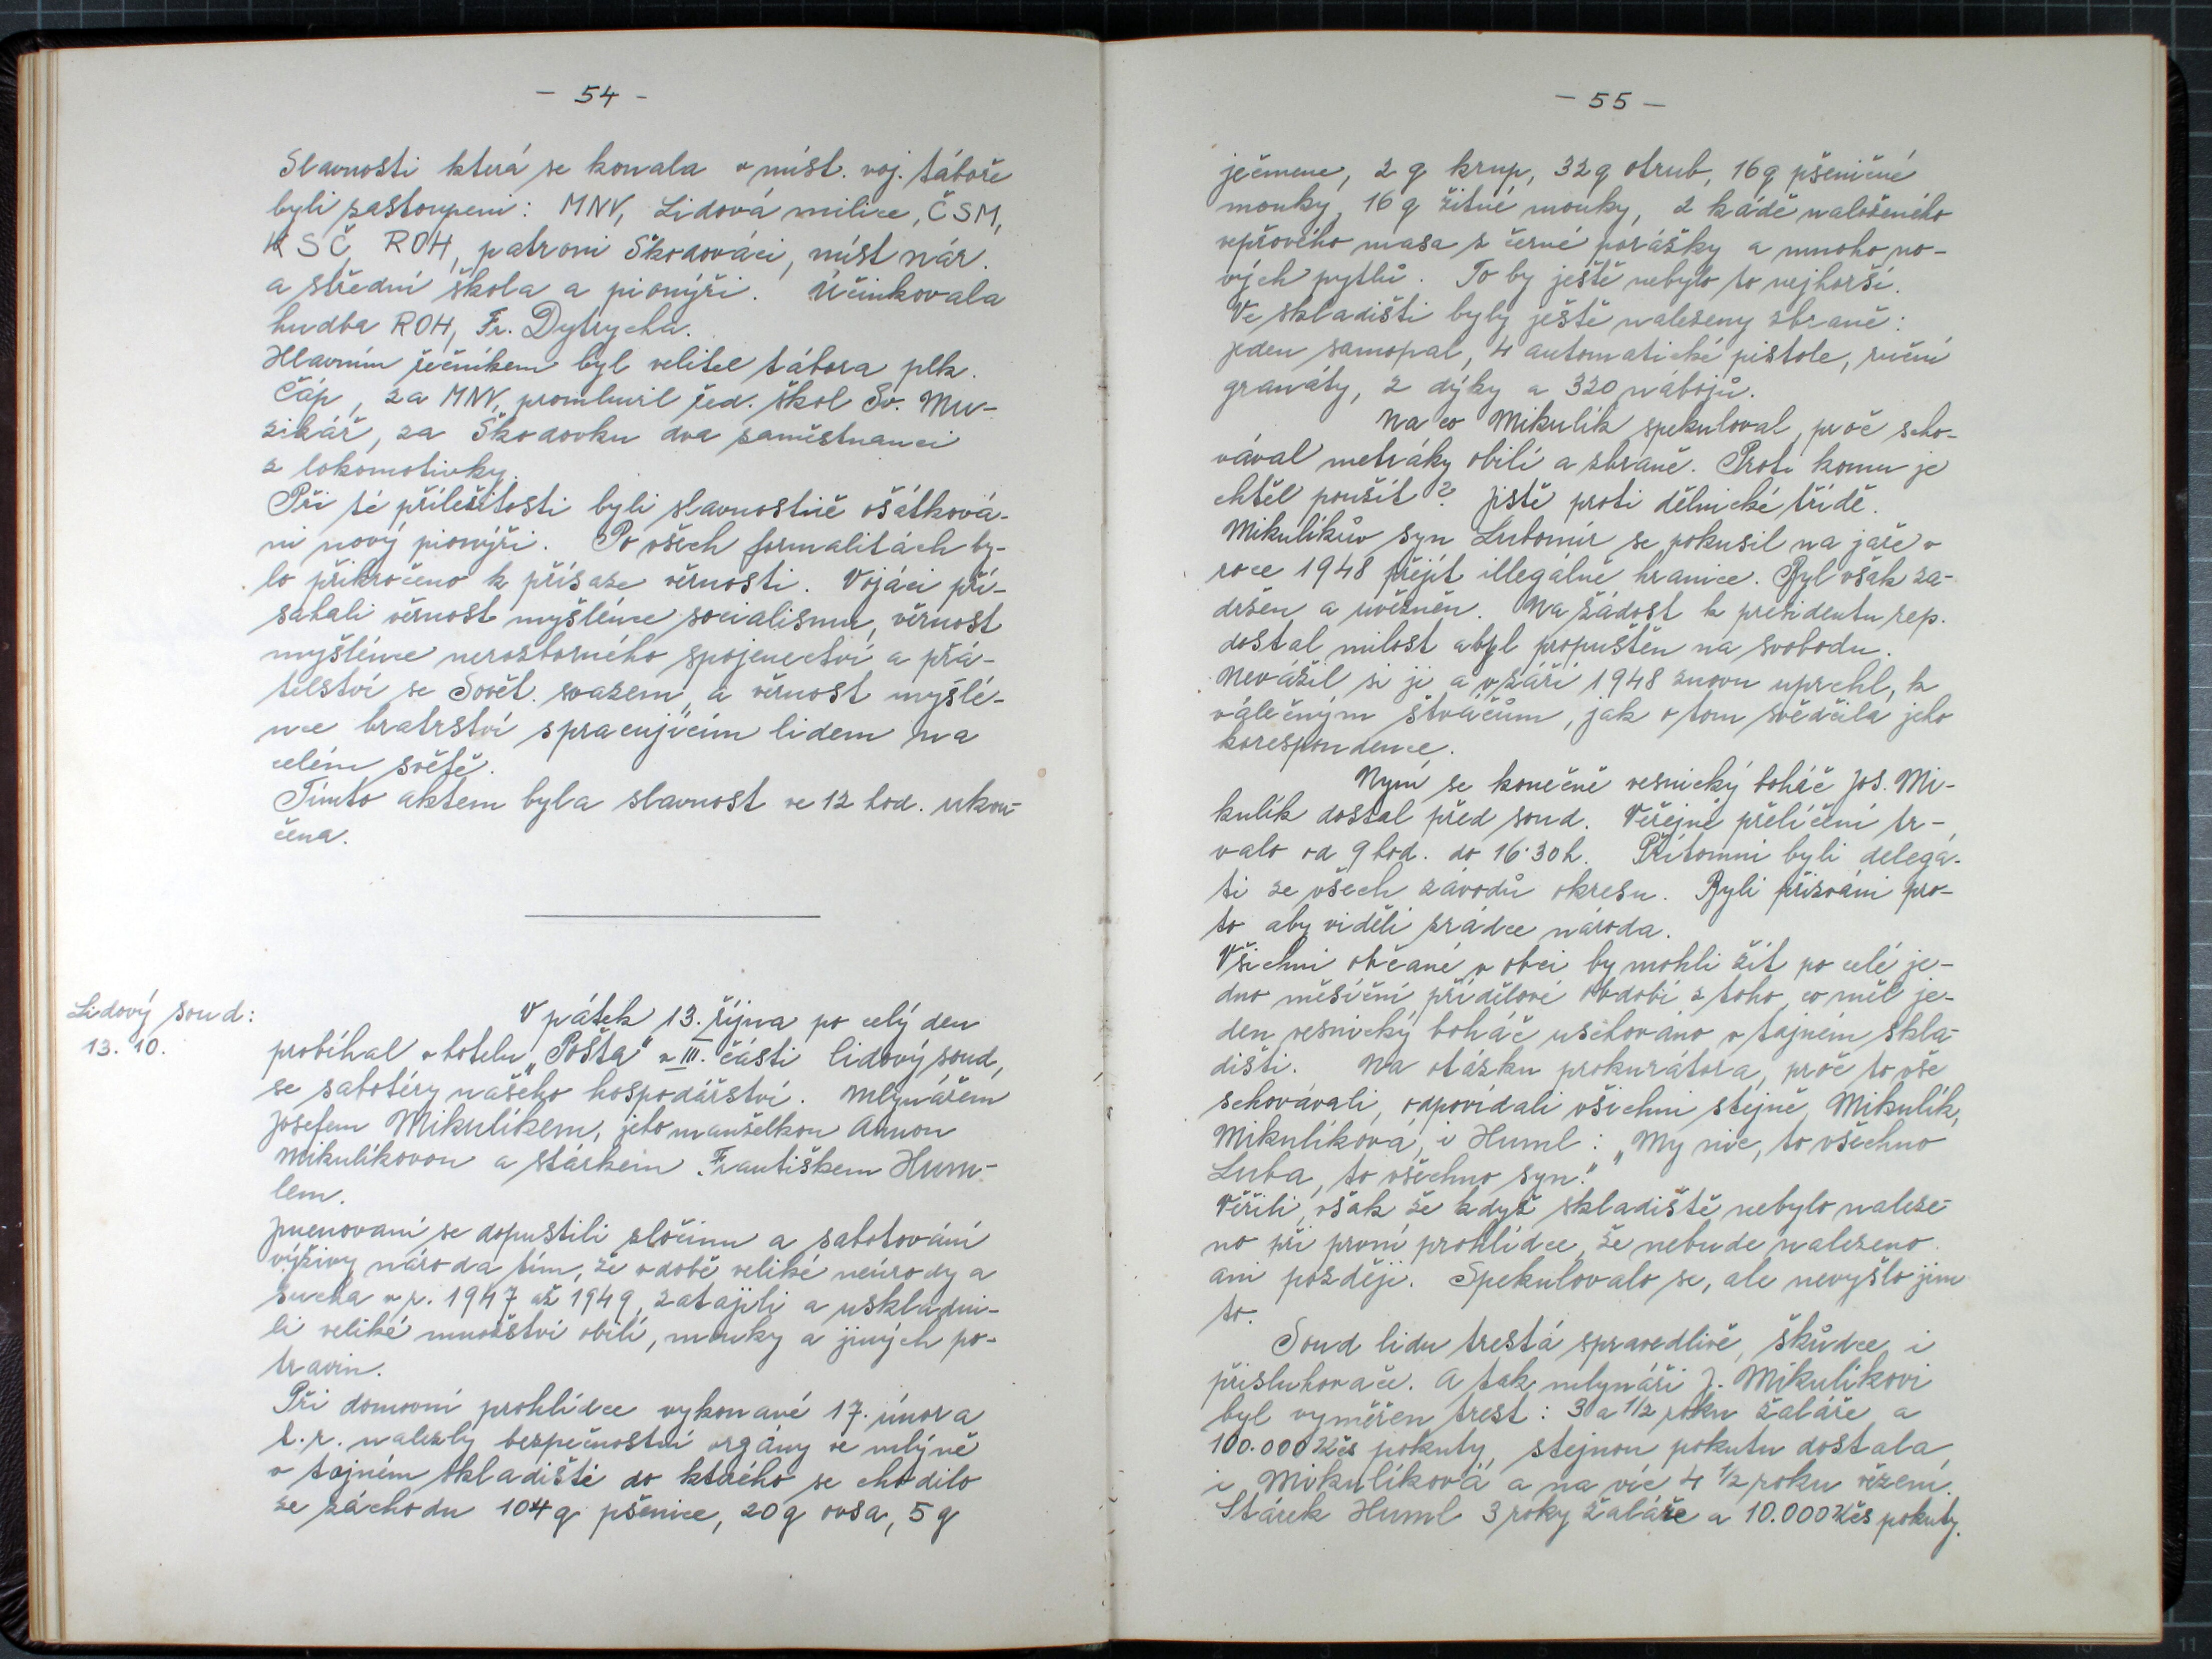 - 54 -
Slavnosti která se konala v míst. voj. táboře
byli zastoupeni: MNV, Lidová milice, ČSM,
KSČ, ROH, patroni Škodováci, míst nár.
a střední škola a pionýři. Účinkovala
hudba ROH, Fr. Dytrycha.
Hlavním řečníkem byl velitel tábora plk.
Čáp, za MNV, promluvil řed. škol Sv. Mu-
zikář, za Škodovku dva zaměstnanci
z lokomotivky.
Při té příležitosti byli slavnostně ošátková-
ni nový pionýři. Po všech formalitách by-
lo přikročeno k přísaze věrnosti. Vojáci pří-
sahali věrnost myšlénce socialismu, věrnost
myšlénce nerozborného spojenectví a přá-
telství se Sovět. svazem, a věrnost myšlé-
nce bratrství spracujícím lidem na
celém světě.
Tímto aktem byla slavnost ve 12 hod. ukon-
čena.
Lidový soud:
13. 10.
V pátek 13. října po celý den
probíhal v hotelu „Pošta" v III. části lidový soud,
se sabotéry našeho hospodářství. Mlynářem
Josefem Mikulíkem, jeho manželkou Annou
Mikulíkovou a stárkem Františkem Hum-
lem.
Jmenovaní se dopustili zločinu a sabotování
výživy národa tím, že v době veliké neúrody a
sucha v r. 1947 až 1949, zatajili a uskladni-
li veliké množství obilí, mouky a jiných po-
travin.
Při domovní prohlídce vykonavé 17. února
t.r. nalezly bezpečnostní orgány ve mlýně
v tajném skladišti do kterého se chodilo
ze záchodu 104 q pšenice, 20 q ovsa, 5 q
- 55 -
ječmene, 2 q krup, 32 q otrub, 16 q pšeničné
mouky, 16 q žitné mouky, 2 kádě naloženého
vepřového masa z černé porážky a mnoho no-
vých pytlů. To by ještě nebylo to nejhorší.
Ve skladišti byly ještě nalezeny zbraně:
jeden samopal, 4 automatické pistole, ruční
granáty, 2 dýky a 320 nábojů.
Na co Mikulík spekuloval, proč scho-
vával metráky obilí a zbraně. Proti komu je
chtěl použít? Jistě proti dělnické třídě.
Mikulíkův syn Lubomír se pokusil na jaře v
roce 1948 přejít illegálně hranice. Byl však za-
držen a uvězněn. Na žádost k presidentu rep.
dostal milost a byl propuštěn na svobodu.
Nevážil si jí a v září 1948 znovu uprchl, k
válečným štváčům, jak o tom svědčila jeho
korespondence.
Nyní se konečně vesnický boháč Jos. Mi-
kulík dostal před soud. Veřejné přelíčení tr-
valo od 9 hod. do 16·30 h. Přítomni byli delegá-
ti ze všech závodů okresu. Byli přizváni pro-
to aby viděli zrádce národa.
Všichni občané v obci by mohli žít po celé je-
dno měsíční přídělové období z toho, co měl je-
den vesnický boháč uschováno v tajném skla-
dišti. Na otázku prokurátora, proč to vše
schovávali, odpovídali všichni stejně, Mikulík,
Mikulíková, i Huml: „My nic, to všechno
Luba, to všechno syn."
Věřili, však že když skladiště nebylo naleze-
no při první prohlídce, že nebude nalezeno
ani později. Spekulovalo se, ale nevyšlo jim
to.
Soud lidu trestá spravedlivě, škůdce i
přisluhovače. A tak mlynáři J. Mikulíkovi
byl vyměřen trest: 3 a 1/2 roku žaláře a
100.000 Kčs pokuty, stejnou pokutu dostala
i Mikulíková a na víc 4 1/2 roku vězení.
Stárek Huml 3 roky žaláře a 10.000 Kčs pokuty.